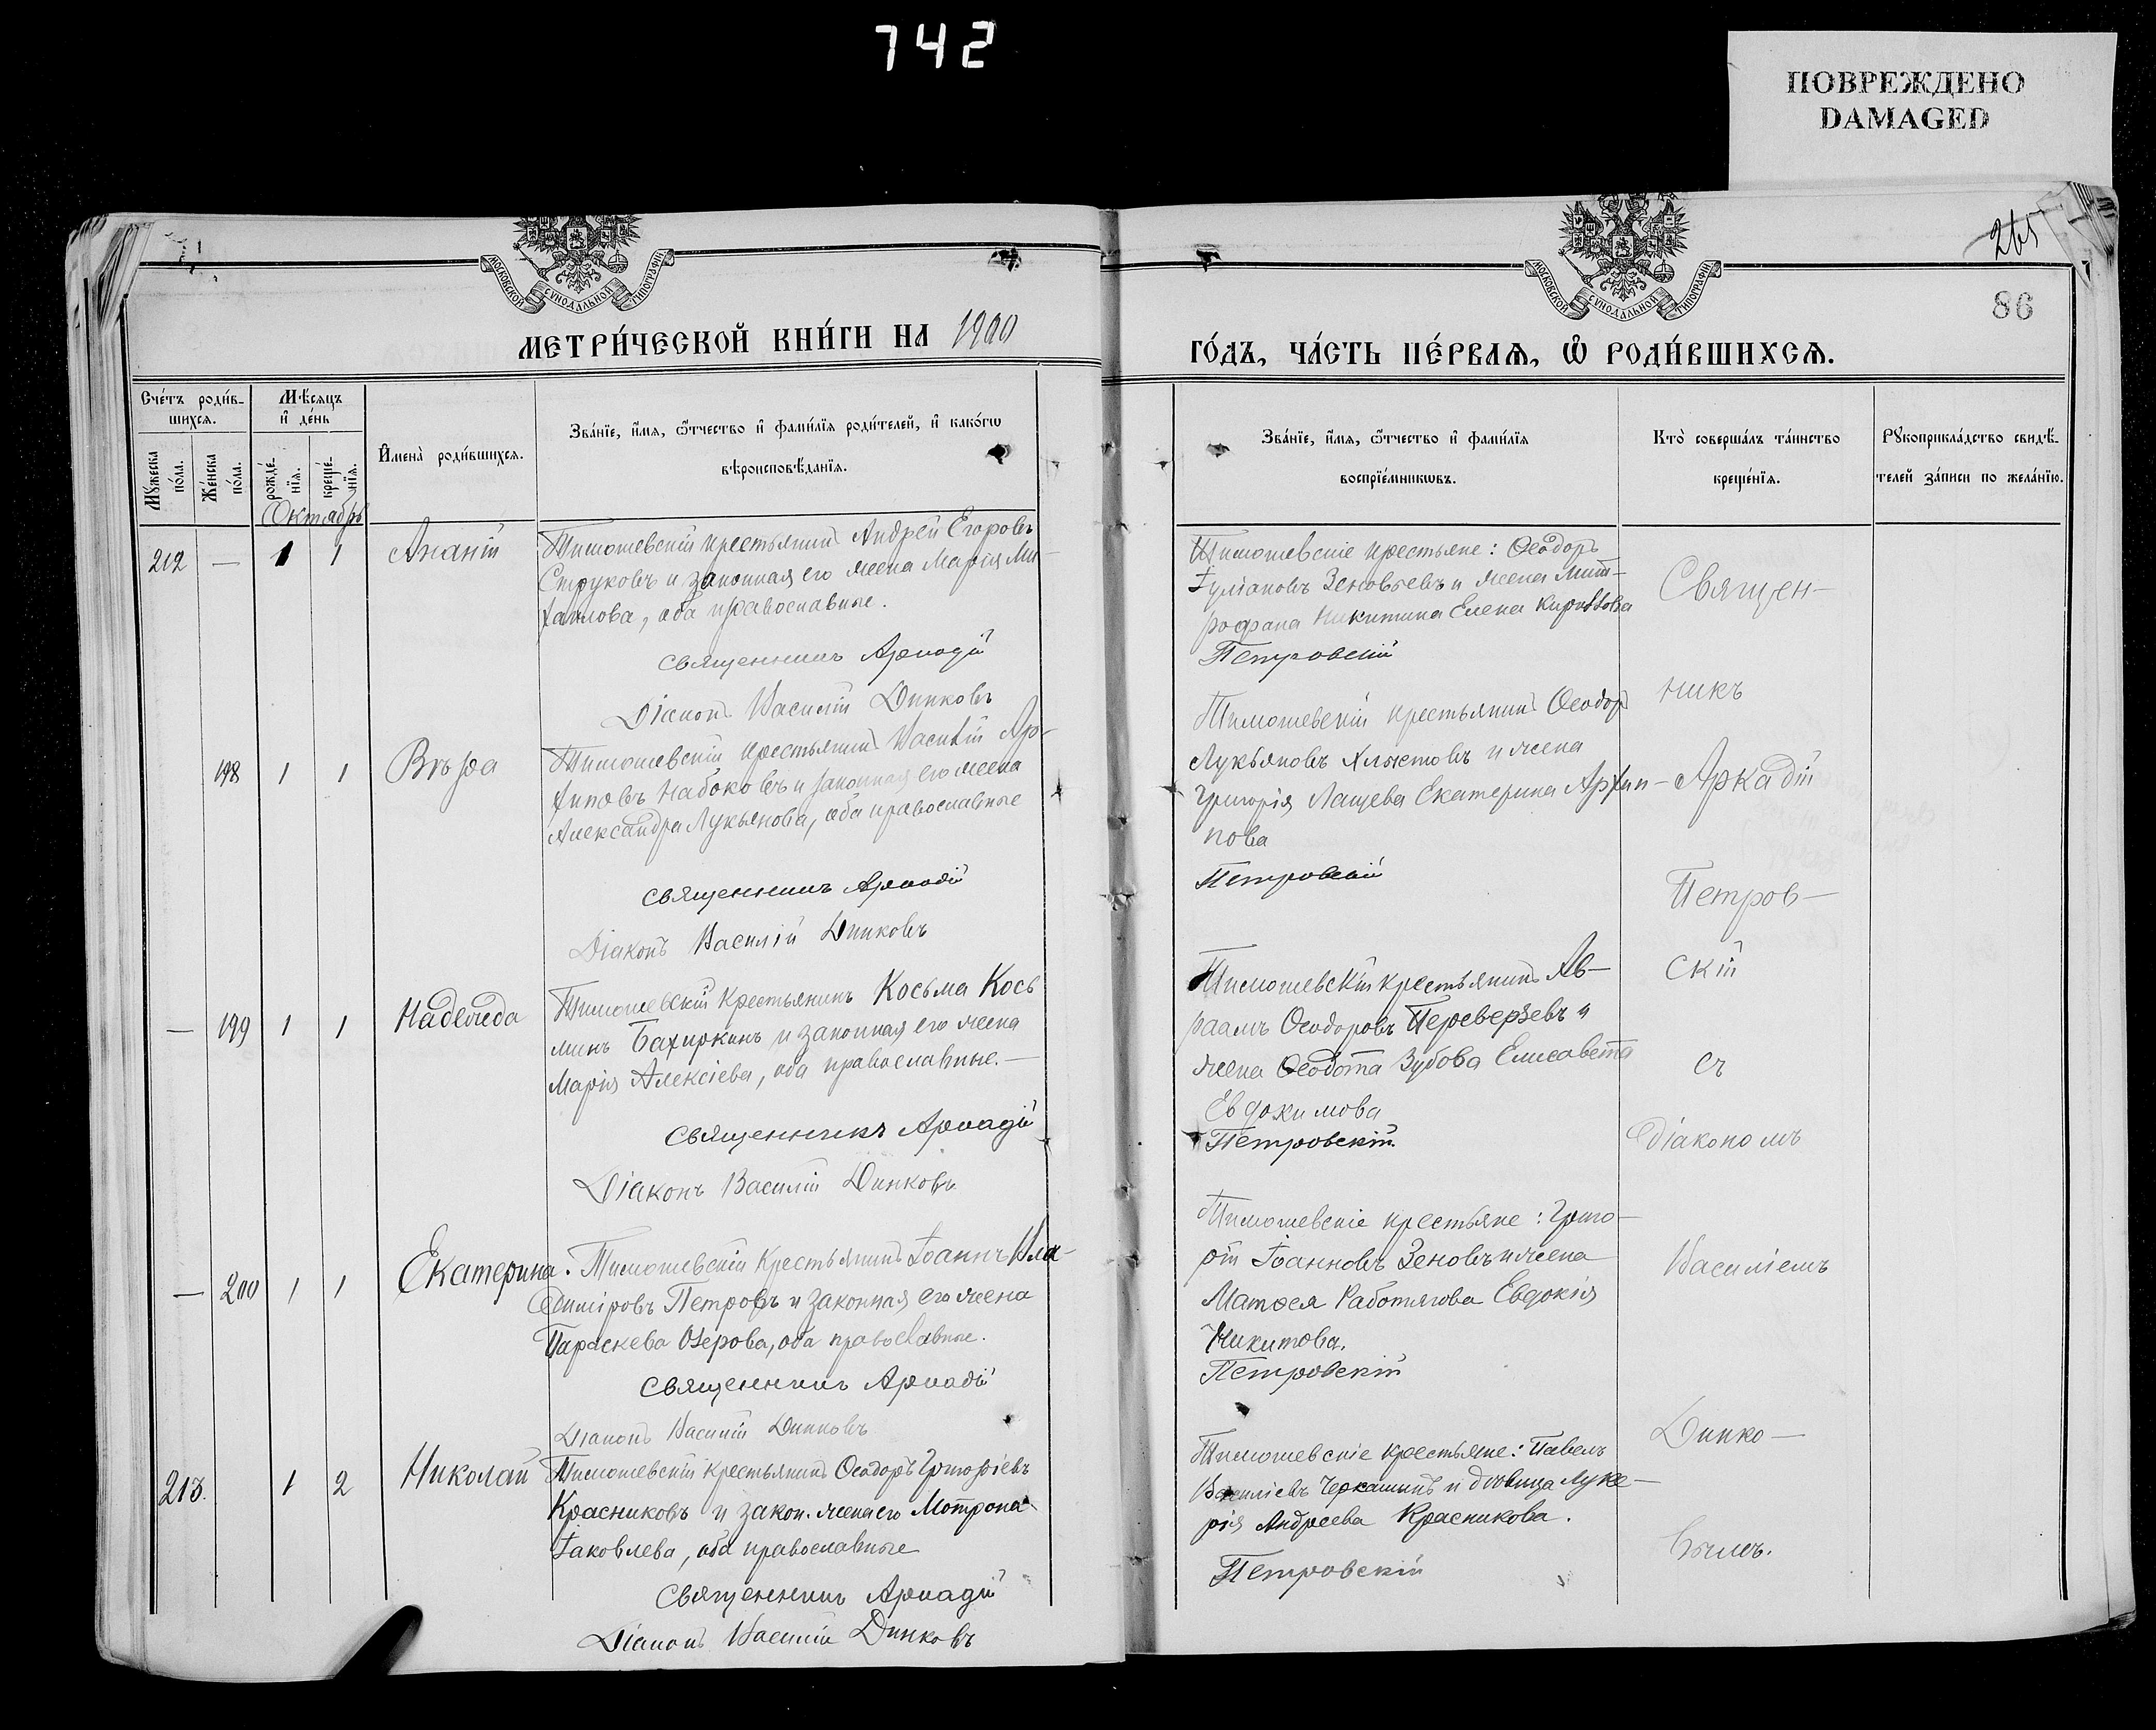 742
ПОВРЕЖДЕНО
DAMAGED
265
86
МОСКОВСКОЙ СѴНОДАЛЬНОЙ ТИПОГРАФІИ
МОСКОВСКОЙ СѴНОДАЛЬНОЙ ТИПОГРАФІИ
МЕТРИ́ЧЕСКОЙ КНИ́ГИ НА 1900
ГО́ДЪ, ЧА́СТЬ ПЕ́РВАЯ, Ѽ РОДИ́ВШИХСЯ.
Сче́тъ роди́в-
шихся.
Мꙋ́жеска по́ла.
Же́нска по́ла.
Мѣ́сяцъ
и҆ де́нь
рожде́-
нїя.
креще́-
нїя.
Октябрь
И҆мена̀ роди́вшихся.
Зва́нїе, и҆́мя, ѻ҆́тчество и҆ фами́лїя роди́телей, и҆ како́гѡ
вѣроисповѣ́данїя.
Зва́нїе, и҆́мя, ѻ҆́тчество и҆ фами́лїя
воспрїе́мникѡвъ.
Кто̀ соверша́лъ та́инство
креще́нїя.
Рꙋкоприкла́дство свидѣ́-
телей за́писи по жела́нїю.
212 — 1 1 Ананій
Тимошевскій крестьянинъ Андрей Егоровъ
Струковъ и законная его жена Марія Ми-
хаилова, оба православные.
Священникъ Аркадій
Діаконъ Василій Динковъ
Тимошевскіе крестьяне: Ѳеодоръ
Іуліановъ Зеновьевъ и жена Мит-
рофана Никитина Елена Кириллова
Петровскій
198 1 1 Вѣра
Тимошевскій крестьянинъ Василій Ар-
хиповъ Набоковъ и законная его жена
Александра Лукьянова, оба православные
Священникъ Аркадій
Діаконъ Василій Динковъ
Тимошевскій крестьянинъ Ѳеодоръ
Лукьяновъ и жена
Григорія Лащева Екатерина Архип-
пова
Петровскій
— 199 1 1 Надежда
Тимошевскій крестьянинъ Косьма Кось
минъ Бахиркинъ и законная его жена
Марія Алексіева, оба православные. —
Священникъ Аркадій
Діаконъ Василій Динковъ
Тимошевскій крестьянинъ Ав-
раамъ Ѳеодоровъ Переверзевъ и
жена Ѳеодота Зубова Елисавета
Евдокимова
Петровскій.
— 200 1 1 Екатерина.
Тимошевскій крестьянинъ Іоаннъ Вла-
диміровъ Петровъ и законная его жена
Параскева Озерова, оба православные.
Священникъ Аркадій
Діаконъ Василій Динковъ
Тимошевскіе крестьяне: Григо-
рій Іоанновъ Зеновъ и жена
Матѳея Работягова Евдокія
Никитова.
Петровскій
213. 1 2 Николай
Тимошевскій крестьянинъ Ѳеодоръ Григоріевъ
Красниковъ и закон. жена его Мотрона
Іаковлева, оба православные
Священникъ Аркадій
Діаконъ Василій Динковъ
Тимошевскіе крестьяне: Павелъ
Василіевъ Черкашинъ и дѣвица Луке-
рія Андреева Красникова.
Петровскій
Священ-
никъ
Аркадій
Петров-
скій
съ
діакономъ
Василіемъ
Динко-
вымъ.